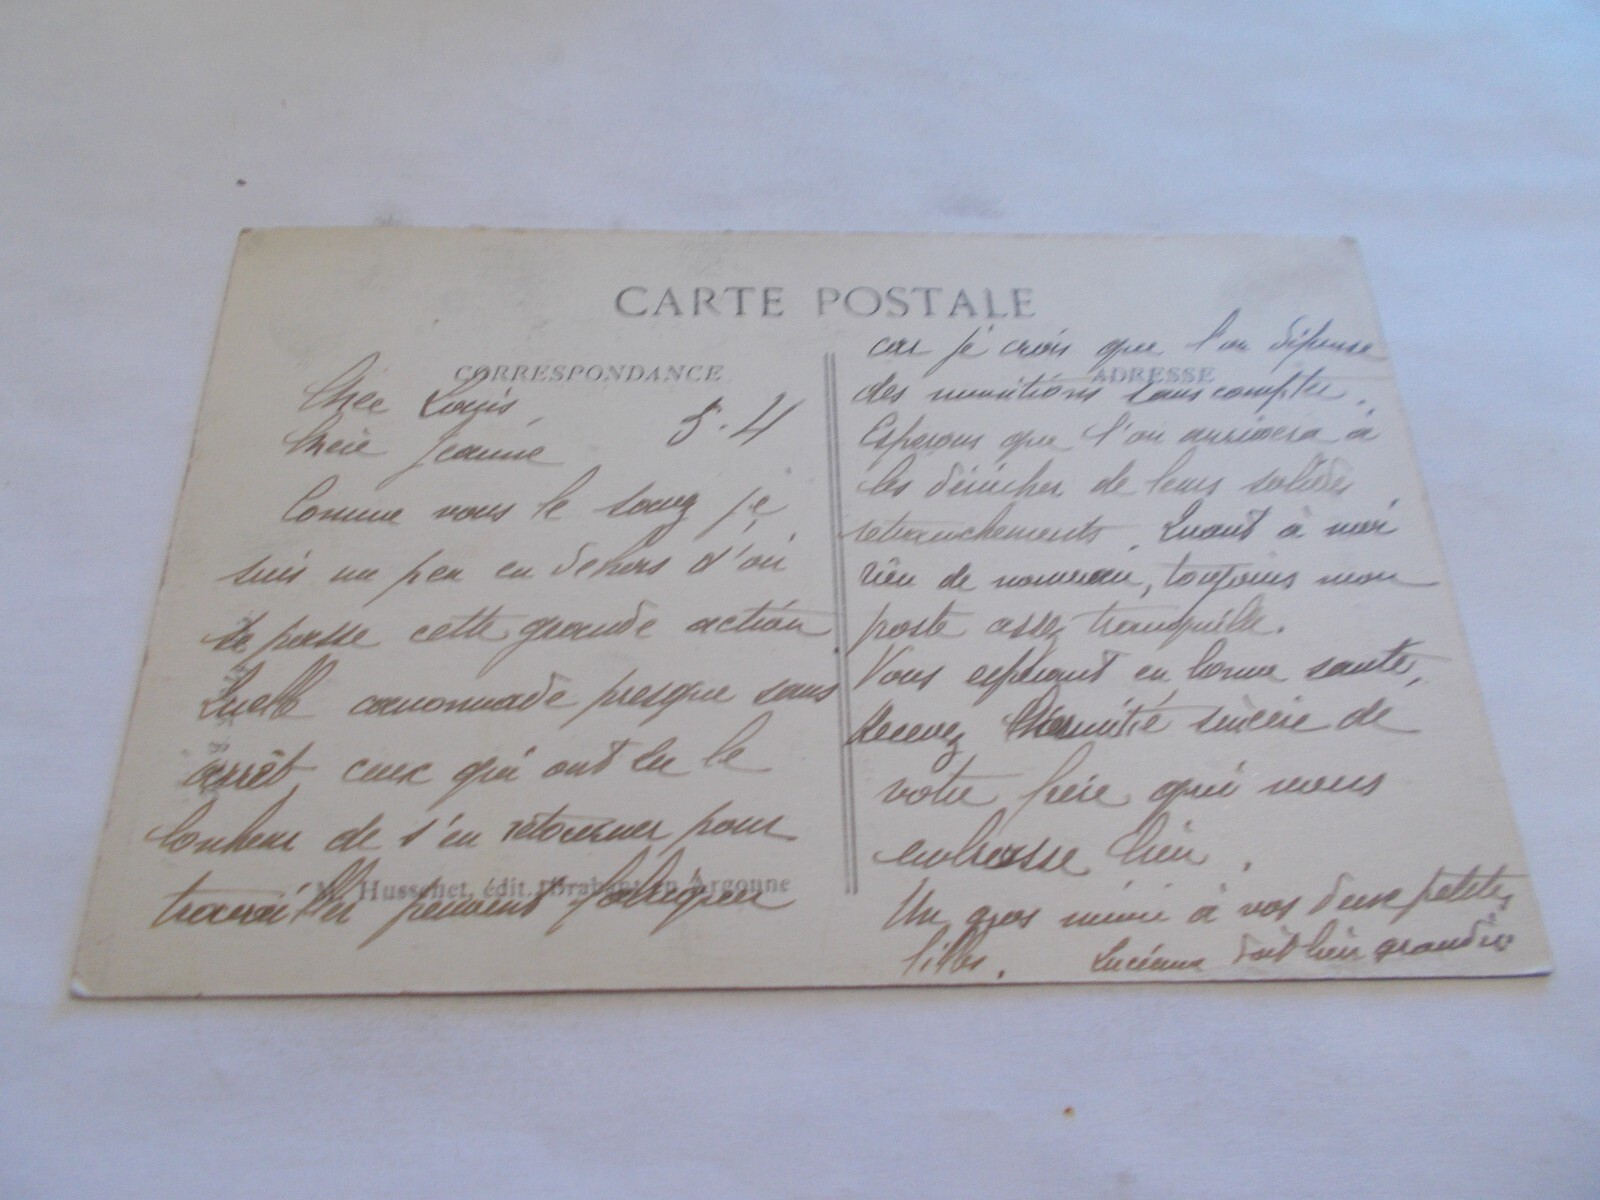 CARTE POSTALE
CORRESPONDANCE
ADRESSE
Cher Louis,
Chère Jeanne
5.4
Comme vous le savez je
suis un peu en dehors d'où
se passe cette grande action
Quelle canonnade presque sans
arrêt ceux qui ont eu le
bonheur de s'en retourner pour
travailler peuvent fabriquer
Husschet, édit. Brabant en Argonne
car je crois que l'on dépense
des munitions sans compter.
Espérons que l'on arrivera à
les dénicher de leurs solides
retranchements. Quant à moi
rien de nouveau, toujours mon
poste assez tranquille.
Vous espérant en bonne santé,
Recevez l'amitié sincère de
votre frère qui vous
embrasse bien.
Un gros mimi à vos deux petites
filles. Lucienne doit bien grandir